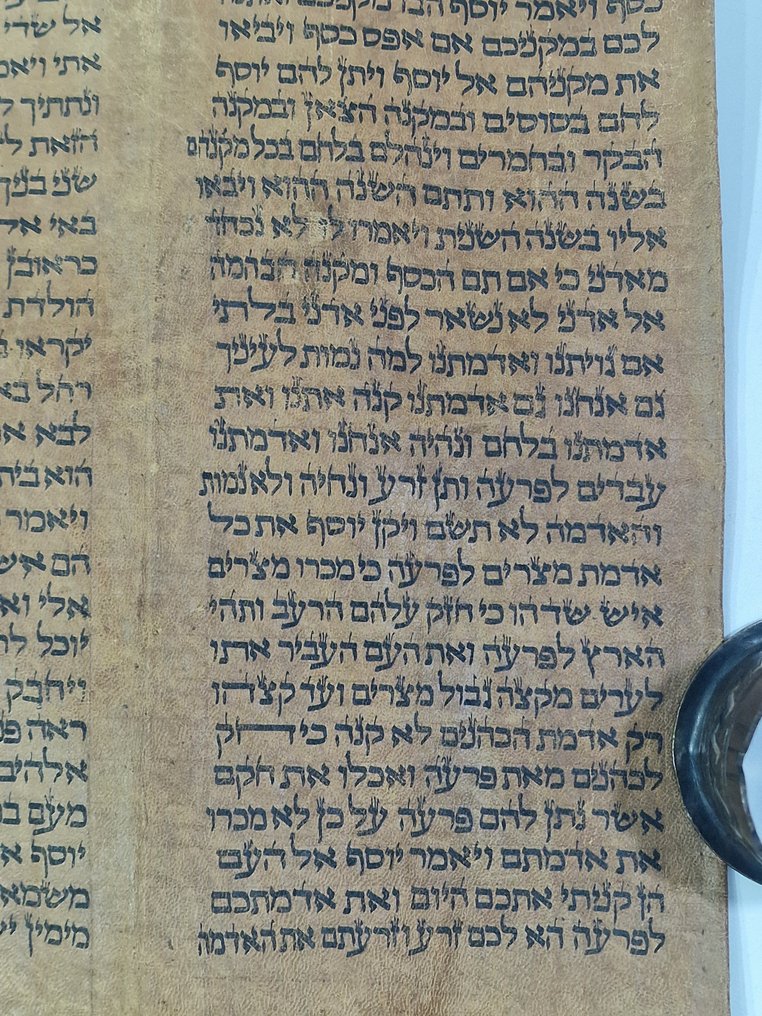 כסף ויאמר יוסף הבו מקניכם
לכם במקניכם אם אפס כסף ויביאו
את מקניהם אל יוסף ויתן להם יוסף
לחם בסוסים ובמקנה הצאן ובמקנה
הבקר ובחמרים וינהלם בלחם בכל מקנהם
בשנה ההוא ותתם השנה ההוא ויבאו
אליו בשנה השנית ויאמרו לו לא נכחד
מאדני כי אם תם הכסף ומקנה הבהמה
אל אדני לא נשאר לפני אדני בלתי
אם גויתנו ואדמתנו למה נמות לעיניך
גם אנחנו גם אדמתנו קנה אתנו ואת
אדמתנו בלחם ונהיה אנחנו ואדמתנו
עבדים לפרעה ותן זרע ונחיה ולא נמות
והאדמה לא תשם ויקן יוסף את כל
אדמת מצרים לפרעה כי מכרו מצרים
איש שדהו כי חזק עלהם הרעב ותהי
הארץ לפרעה ואת העם העביר אתו
לערים מקצה גבול מצרים ועד קצהו
רק אדמת הכהנים לא קנה כי חק
לכהנים מאת פרעה ואכלו את חקם
אשר נתן להם פרעה על כן לא מכרו
את אדמתם ויאמר יוסף אל העם
הן קניתי אתכם היום ואת אדמתכם
לפרעה הא לכם זרע וזרעתם את האדמה
אל שדי
אתי
ונתתיך
הזאת
שני בניך
באי
כראובן
הולדת
יקראו
רחל
לבא
הוא
ויאמר
הם
אלי
יוכל
ויחבק
ראה
אלהים
מעם
יוסף
מימין